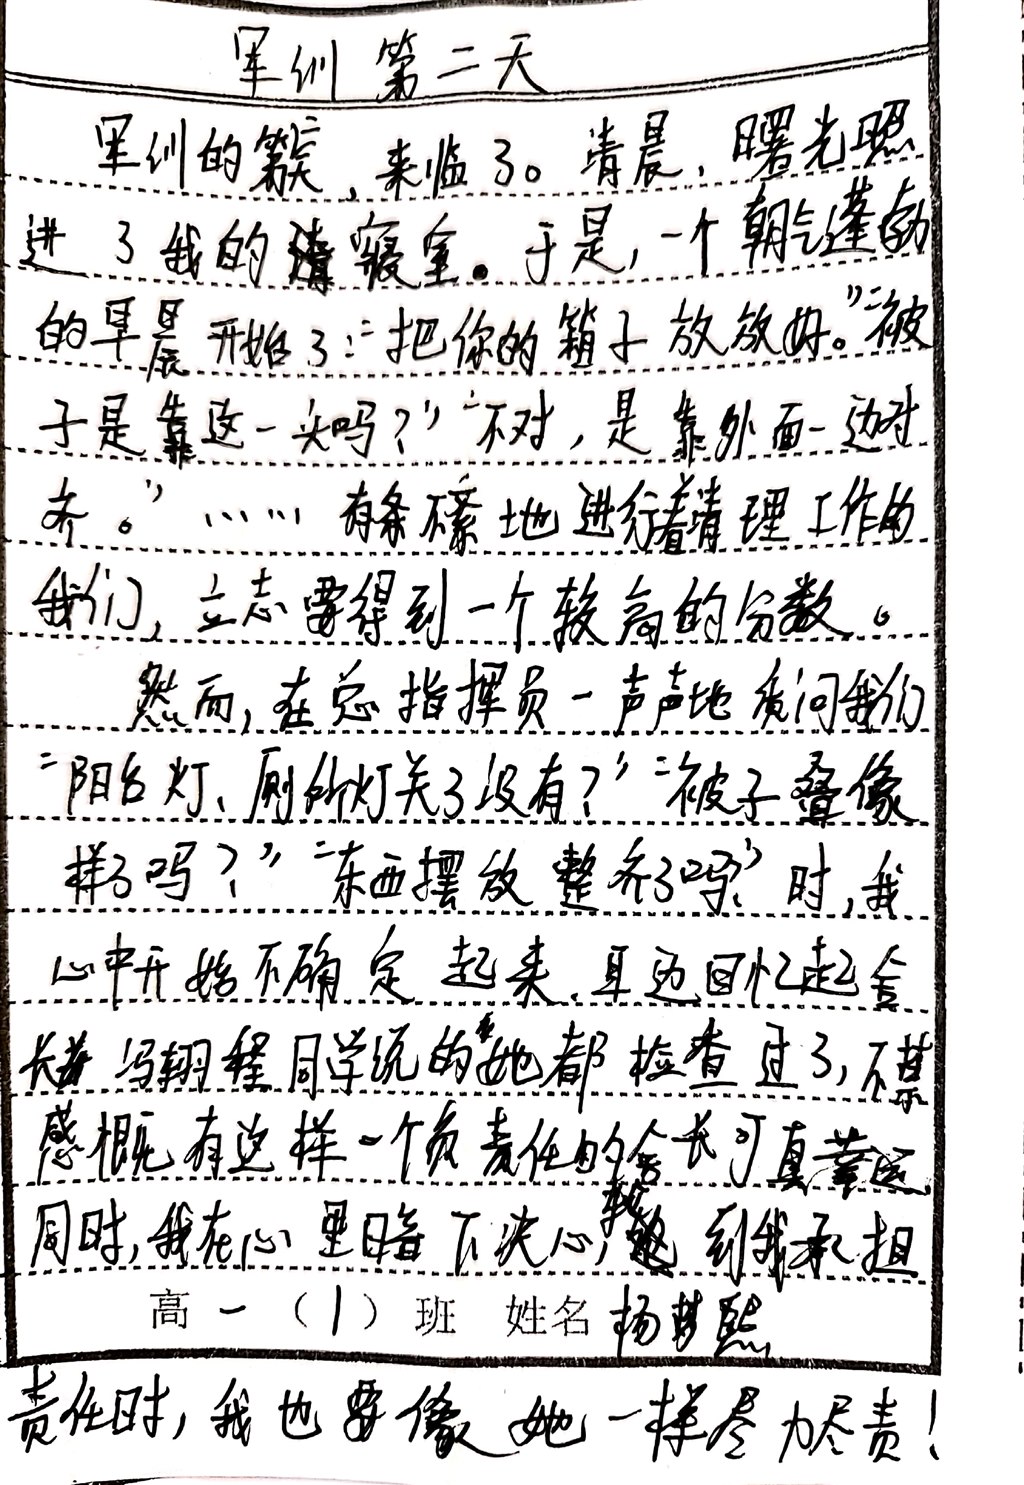 军训第二天
军训的第二天,来临了。清晨,曙光照
进了我的寝室。于是,一个朝气蓬勃
的早晨开始了:“把你的箱子放放好。”“被
子是靠这一头吗?”“不对,是靠外面一边对
齐。”……有条不紊地进行着清理工作的
我们,立志要得到一个较高的分数。
然而,在总指挥员一声声地质问我们
“阳台灯、厕所灯关了没有?”“被子叠像
样了吗?”“东西摆放整齐了吗?”时,我
心中开始不确定起来,耳边回忆起舍
长冯翙程同学说的她都检查过了,不禁
感概有这样一个负责任的舍长可真幸运
同时,我在心里暗下决心,轮到我承担
高一(1)班 姓名 杨梦熙
责任时,我也要像她一样尽力尽责!